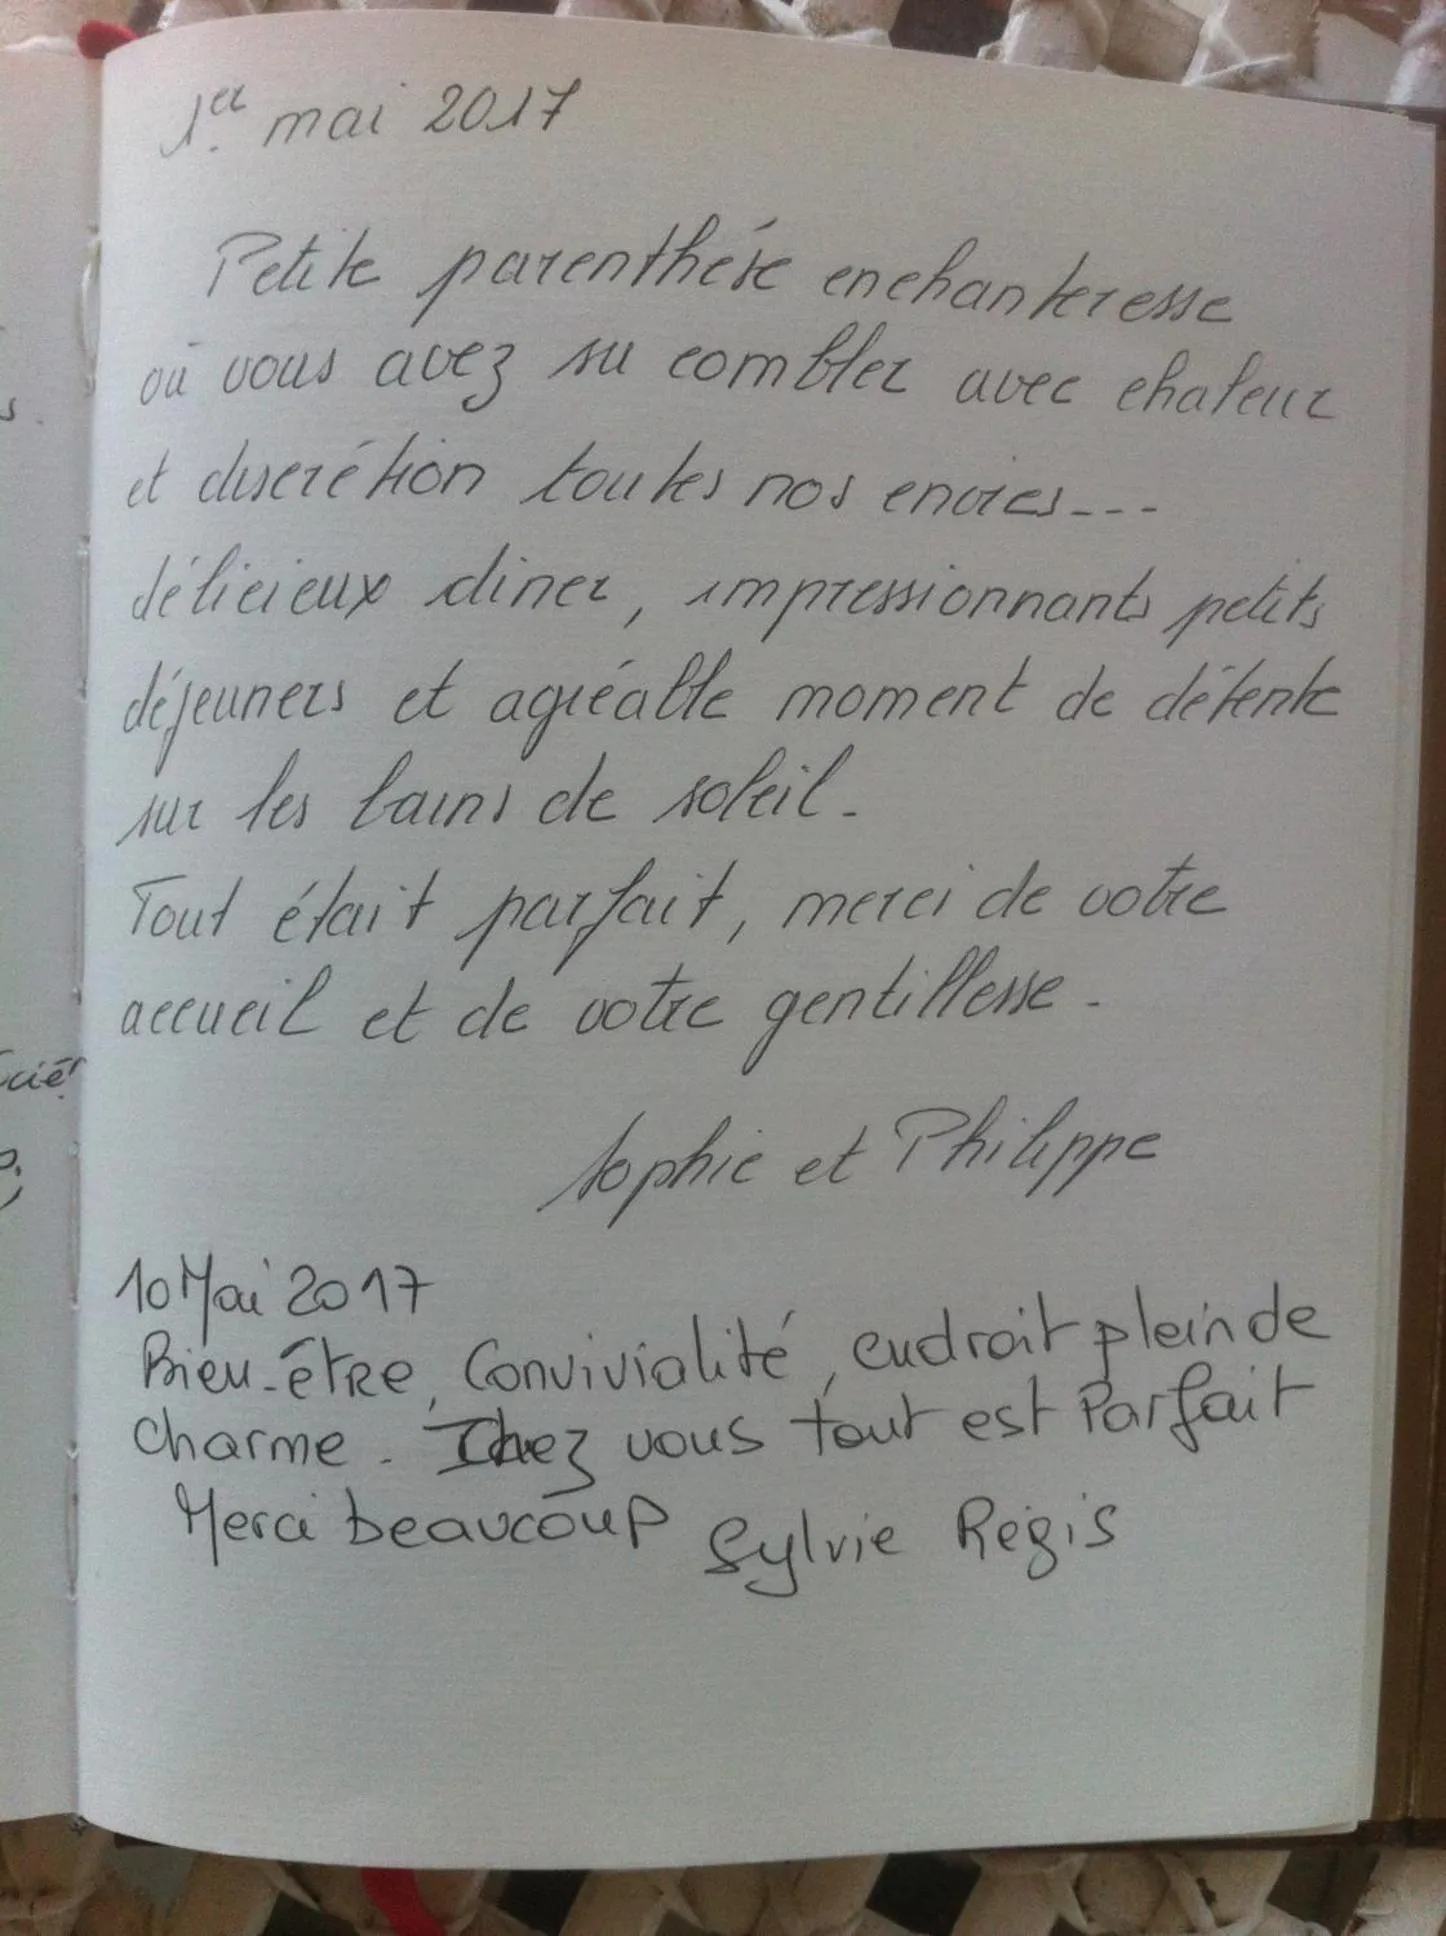 1er mai 2017
Petite parenthèse enchanteresse
où vous avez su combler avec chaleur
et discrétion toutes nos envies---
délicieux diner, impressionnants petits
déjeuners et agréable moment de détente
sur les bains de soleil.
Tout était parfait, merci de votre
accueil et de votre gentillesse.
Sophie et Philippe
10 Mai 2017
Bien-être, Convivialité, endroit plein de
charme. Chez vous tout est Parfait
Merci beaucoup Sylvie Régis